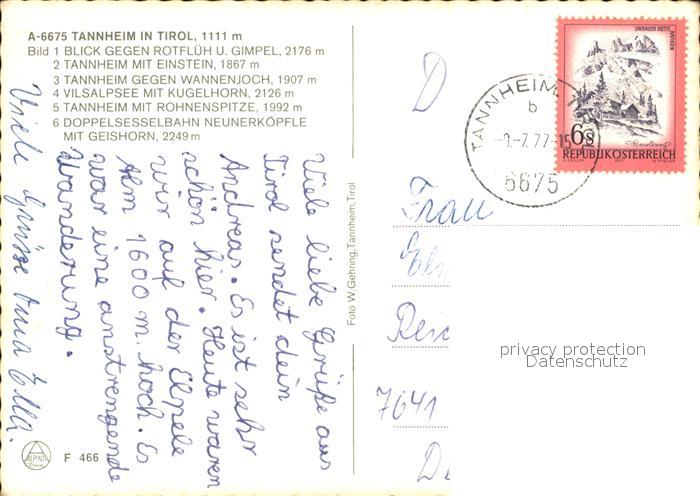 A-6675 TANNHEIM IN TIROL, 1111 m
Bild 1 BLICK GEGEN ROTFLÜH U. GIMPEL, 2176 m
2 TANNHEIM MIT EINSTEIN, 1867 m
3 TANNHEIM GEGEN WANNENJOCH, 1907 m
4 VILSALPSEE MIT KUGELHORN, 2126 m
5 TANNHEIM MIT ROHNENSPITZE, 1992 m
6 DOPPELSESSELBAHN NEUNERKÖPFLE
MIT GEISHORN, 2249 m
Viele liebe Grüße aus
Tirol sendet dein
Andreas. Es ist sehr
schön hier. Heute waren
wir auf der
Alm 1600 m. hoch. Es
war eine anstrengende
Wanderung.
Viele Grüsse Oma Ella.
ALPINA
F 466
Foto W. Gehring, Tannheim, Tirol
D
TANNHEIM
b
-7.77-15
6675
LINDAUER HÜTTE
RÄTIKON
6 S
REPUBLIK ÖSTERREICH
Frau
7641
privacy protection
Datenschutz